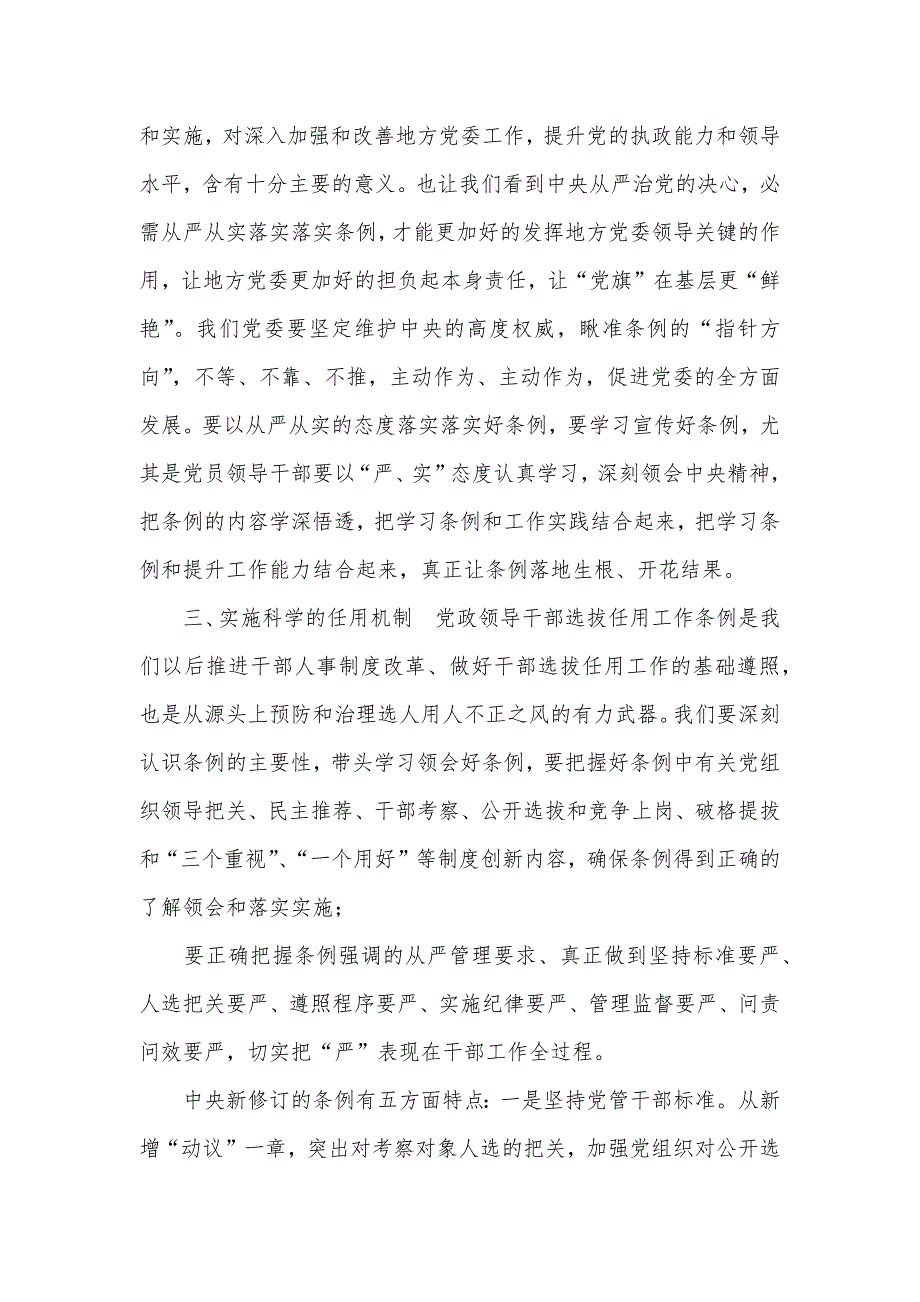 和实施，对深入加强和改善地方党委工作，提升党的执政能力和领导
水平，含有十分主要的意义。也让我们看到中央从严治党的决心，必
需从严从实落实落实条例，才能更加好的发挥地方党委领导关键的作
用，让地方党委更加好的担负起本身责任，让“党旗”在基层更“鲜
艳”。我们党委要坚定维护中央的高度权威，瞅准条例的“指针方
向”，不等、不靠、不推，主动作为、主动作为，促进党委的全方面
发展。要以从严从实的态度落实落实好条例，要学习宣传好条例，尤
其是党员领导干部要以“严、实”态度认真学习，深刻领会中央精神，
把条例的内容学深悟透，把学习条例和工作实践结合起来，把学习条
例和提升工作能力结合起来，真正让条例落地生根、开花结果。
三、实施科学的任用机制　党政领导干部选拔任用工作条例是我
们以后推进干部人事制度改革、做好干部选拔任用工作的基础遵照，
也是从源头上预防和治理选人用人不正之风的有力武器。我们要深刻
认识条例的主要性，带头学习领会好条例，要把握好条例中有关党组
织领导把关、民主推荐、干部考察、公开选拔和竞争上岗、破格提拔
和“三个重视”、“一个用好”等制度创新内容，确保条例得到正确的
了解领会和落实实施；
要正确把握条例强调的从严管理要求、真正做到坚持标准要严、
人选把关要严、遵照程序要严、实施纪律要严、管理监督要严、问责
问效要严，切实把“严”表现在干部工作全过程。
中央新修订的条例有五方面特点：一是坚持党管干部标准。从新
增“动议”一章，突出对考察对象人选的把关，加强党组织对公开选